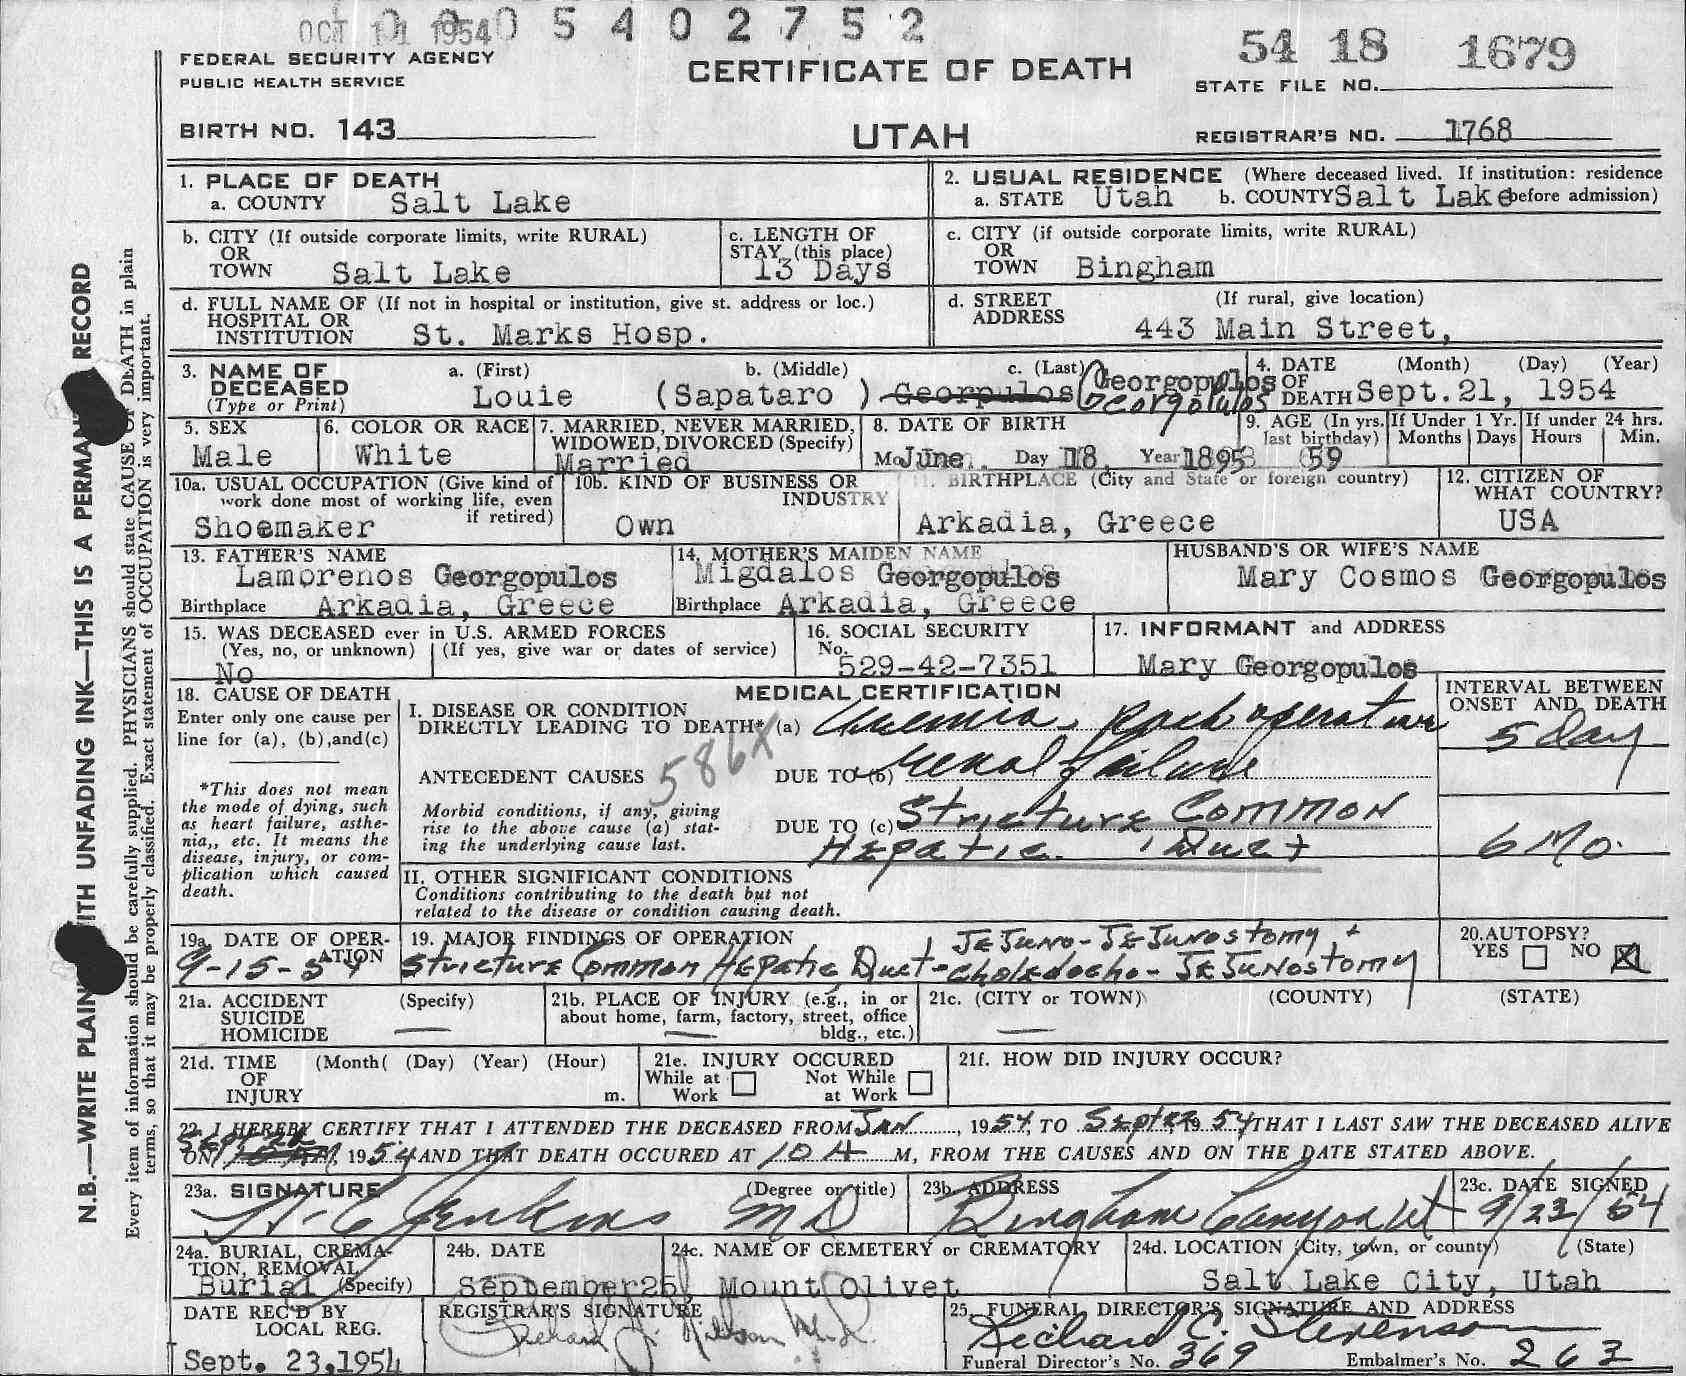 OCT 11 1954 0 5 4 0 2 7 5 2
54 18 1679
FEDERAL SECURITY AGENCY
PUBLIC HEALTH SERVICE
CERTIFICATE OF DEATH
STATE FILE NO.
BIRTH NO. 143
UTAH
REGISTRAR'S NO. 1768
N.B.—WRITE PLAIN WITH UNFADING INK—THIS IS A PERMAN RECORD
Every item of information should be carefully supplied. PHYSICIANS should state CAUSE OF DEATH in plain
terms, so that it may be properly classified. Exact statement of OCCUPATION is very important.
1. PLACE OF DEATH
a. COUNTY Salt Lake
2. USUAL RESIDENCE (Where deceased lived. If institution: residence
a. STATE Utah b. COUNTY Salt Lake before admission)
b. CITY (If outside corporate limits, write RURAL)
OR
TOWN Salt Lake
c. LENGTH OF
STAY (this place)
13 Days
c. CITY (if outside corporate limits, write RURAL)
OR
TOWN Bingham
d. FULL NAME OF (If not in hospital or institution, give st. address or loc.)
HOSPITAL OR
INSTITUTION St. Marks Hosp.
d. STREET (If rural, give location)
ADDRESS
443 Main Street,
3. NAME OF
DECEASED
(Type or Print)
a. (First) b. (Middle) c. (Last)
Louie (Sapataro ) Georpulos Georgopulos
Georgopulos
4. DATE (Month) (Day) (Year)
OF
DEATH Sept.21, 1954
5. SEX
Male
6. COLOR OR RACE
White
7. MARRIED, NEVER MARRIED,
WIDOWED, DIVORCED (Specify)
Married
8. DATE OF BIRTH
Mo June Day 18 Year 1895
9. AGE (In yrs. last birthday) 59
If Under 1 Yr. Months Days
If under 24 hrs. Hours Min.
10a. USUAL OCCUPATION (Give kind of
work done most of working life, even
if retired)
Shoemaker
10b. KIND OF BUSINESS OR
INDUSTRY
Own
11. BIRTHPLACE (City and State or foreign country)
Arkadia, Greece
12. CITIZEN OF
WHAT COUNTRY?
USA
13. FATHER'S NAME
Lamorenos Georgopulos
Birthplace Arkadia, Greece
14. MOTHER'S MAIDEN NAME
Migdalos Georgopulos
Birthplace Arkadia, Greece
HUSBAND'S OR WIFE'S NAME
Mary Cosmos Georgopulos
15. WAS DECEASED ever in U.S. ARMED FORCES
(Yes, no, or unknown) (If yes, give war or dates of service)
No
16. SOCIAL SECURITY
No.
529-42-7351
17. INFORMANT and ADDRESS
Mary Georgopulos
18. CAUSE OF DEATH
Enter only one cause per
line for (a), (b),and(c)
*This does not mean
the mode of dying, such
as heart failure, asthe-
nia,, etc. It means the
disease, injury, or com-
plication which caused
death.
MEDICAL CERTIFICATION
I. DISEASE OR CONDITION
DIRECTLY LEADING TO DEATH* (a) Uremia,
586X
ANTECEDENT CAUSES DUE TO (b) renal failure
Morbid conditions, if any, giving
rise to the above cause (a) stat-
ing the underlying cause last.
DUE TO (c) Stricture Common
Hepatic Duct
INTERVAL BETWEEN
ONSET AND DEATH
5 day
6 Mo.
II. OTHER SIGNIFICANT CONDITIONS
Conditions contributing to the death but not
related to the disease or condition causing death.
19a. DATE OF OPER-
ATION
9-15-54
19. MAJOR FINDINGS OF OPERATION JEJUNO-JEJUNOSTOMY +
Stricture Common Hepatic Duct - Choledocho-JEJUNOSTOMY
20. AUTOPSY?
YES NO X
21a. ACCIDENT (Specify)
SUICIDE
HOMICIDE —
21b. PLACE OF INJURY (e.g., in or
about home, farm, factory, street, office
bldg., etc.)
—
21c. (CITY or TOWN) (COUNTY) (STATE)
—
21d. TIME (Month( (Day) (Year) (Hour)
OF
INJURY m.
21e. INJURY OCCURED
While at Work Not While at Work
21f. HOW DID INJURY OCCUR?
22. I HEREBY CERTIFY THAT I ATTENDED THE DECEASED FROM JAN, 1954, TO Sept 22 1954 THAT I LAST SAW THE DECEASED ALIVE
ON Sept, 1954 AND THAT DEATH OCCURED AT 10 A M, FROM THE CAUSES AND ON THE DATE STATED ABOVE.
23a. SIGNATURE (Degree or title)
Jenkins MD
23b. ADDRESS
Bingham Canyon Ut
23c. DATE SIGNED
9/23/54
24a. BURIAL, CREMA-
TION, REMOVAL
Burial (Specify)
24b. DATE
September25,
24c. NAME OF CEMETERY or CREMATORY
Mount Olivet
24d. LOCATION (City, town, or county) (State)
Salt Lake City, Utah
DATE REC'D BY
LOCAL REG.
Sept. 23,1954
REGISTRAR'S SIGNATURE
25. FUNERAL DIRECTOR'S SIGNATURE AND ADDRESS
Richard C. Stevenson
Funeral Director's No. 369 Embalmer's No. 263